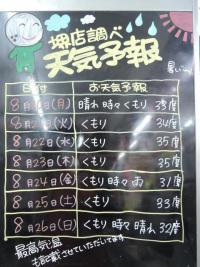 堺店調べ
天気予報
暑い
日付 お天気予報
8月20日(月) 晴れ時々くもり 35度
8月21日(火) くもり 34度
8月22日(水) くもり 35度
8月23日(木) くもり 35度
8月24日(金) くもり時々雨 31度
8月25日(土) くもり 33度
8月26日(日) くもり時々晴れ 32度
最高気温
も記載させていただいてます